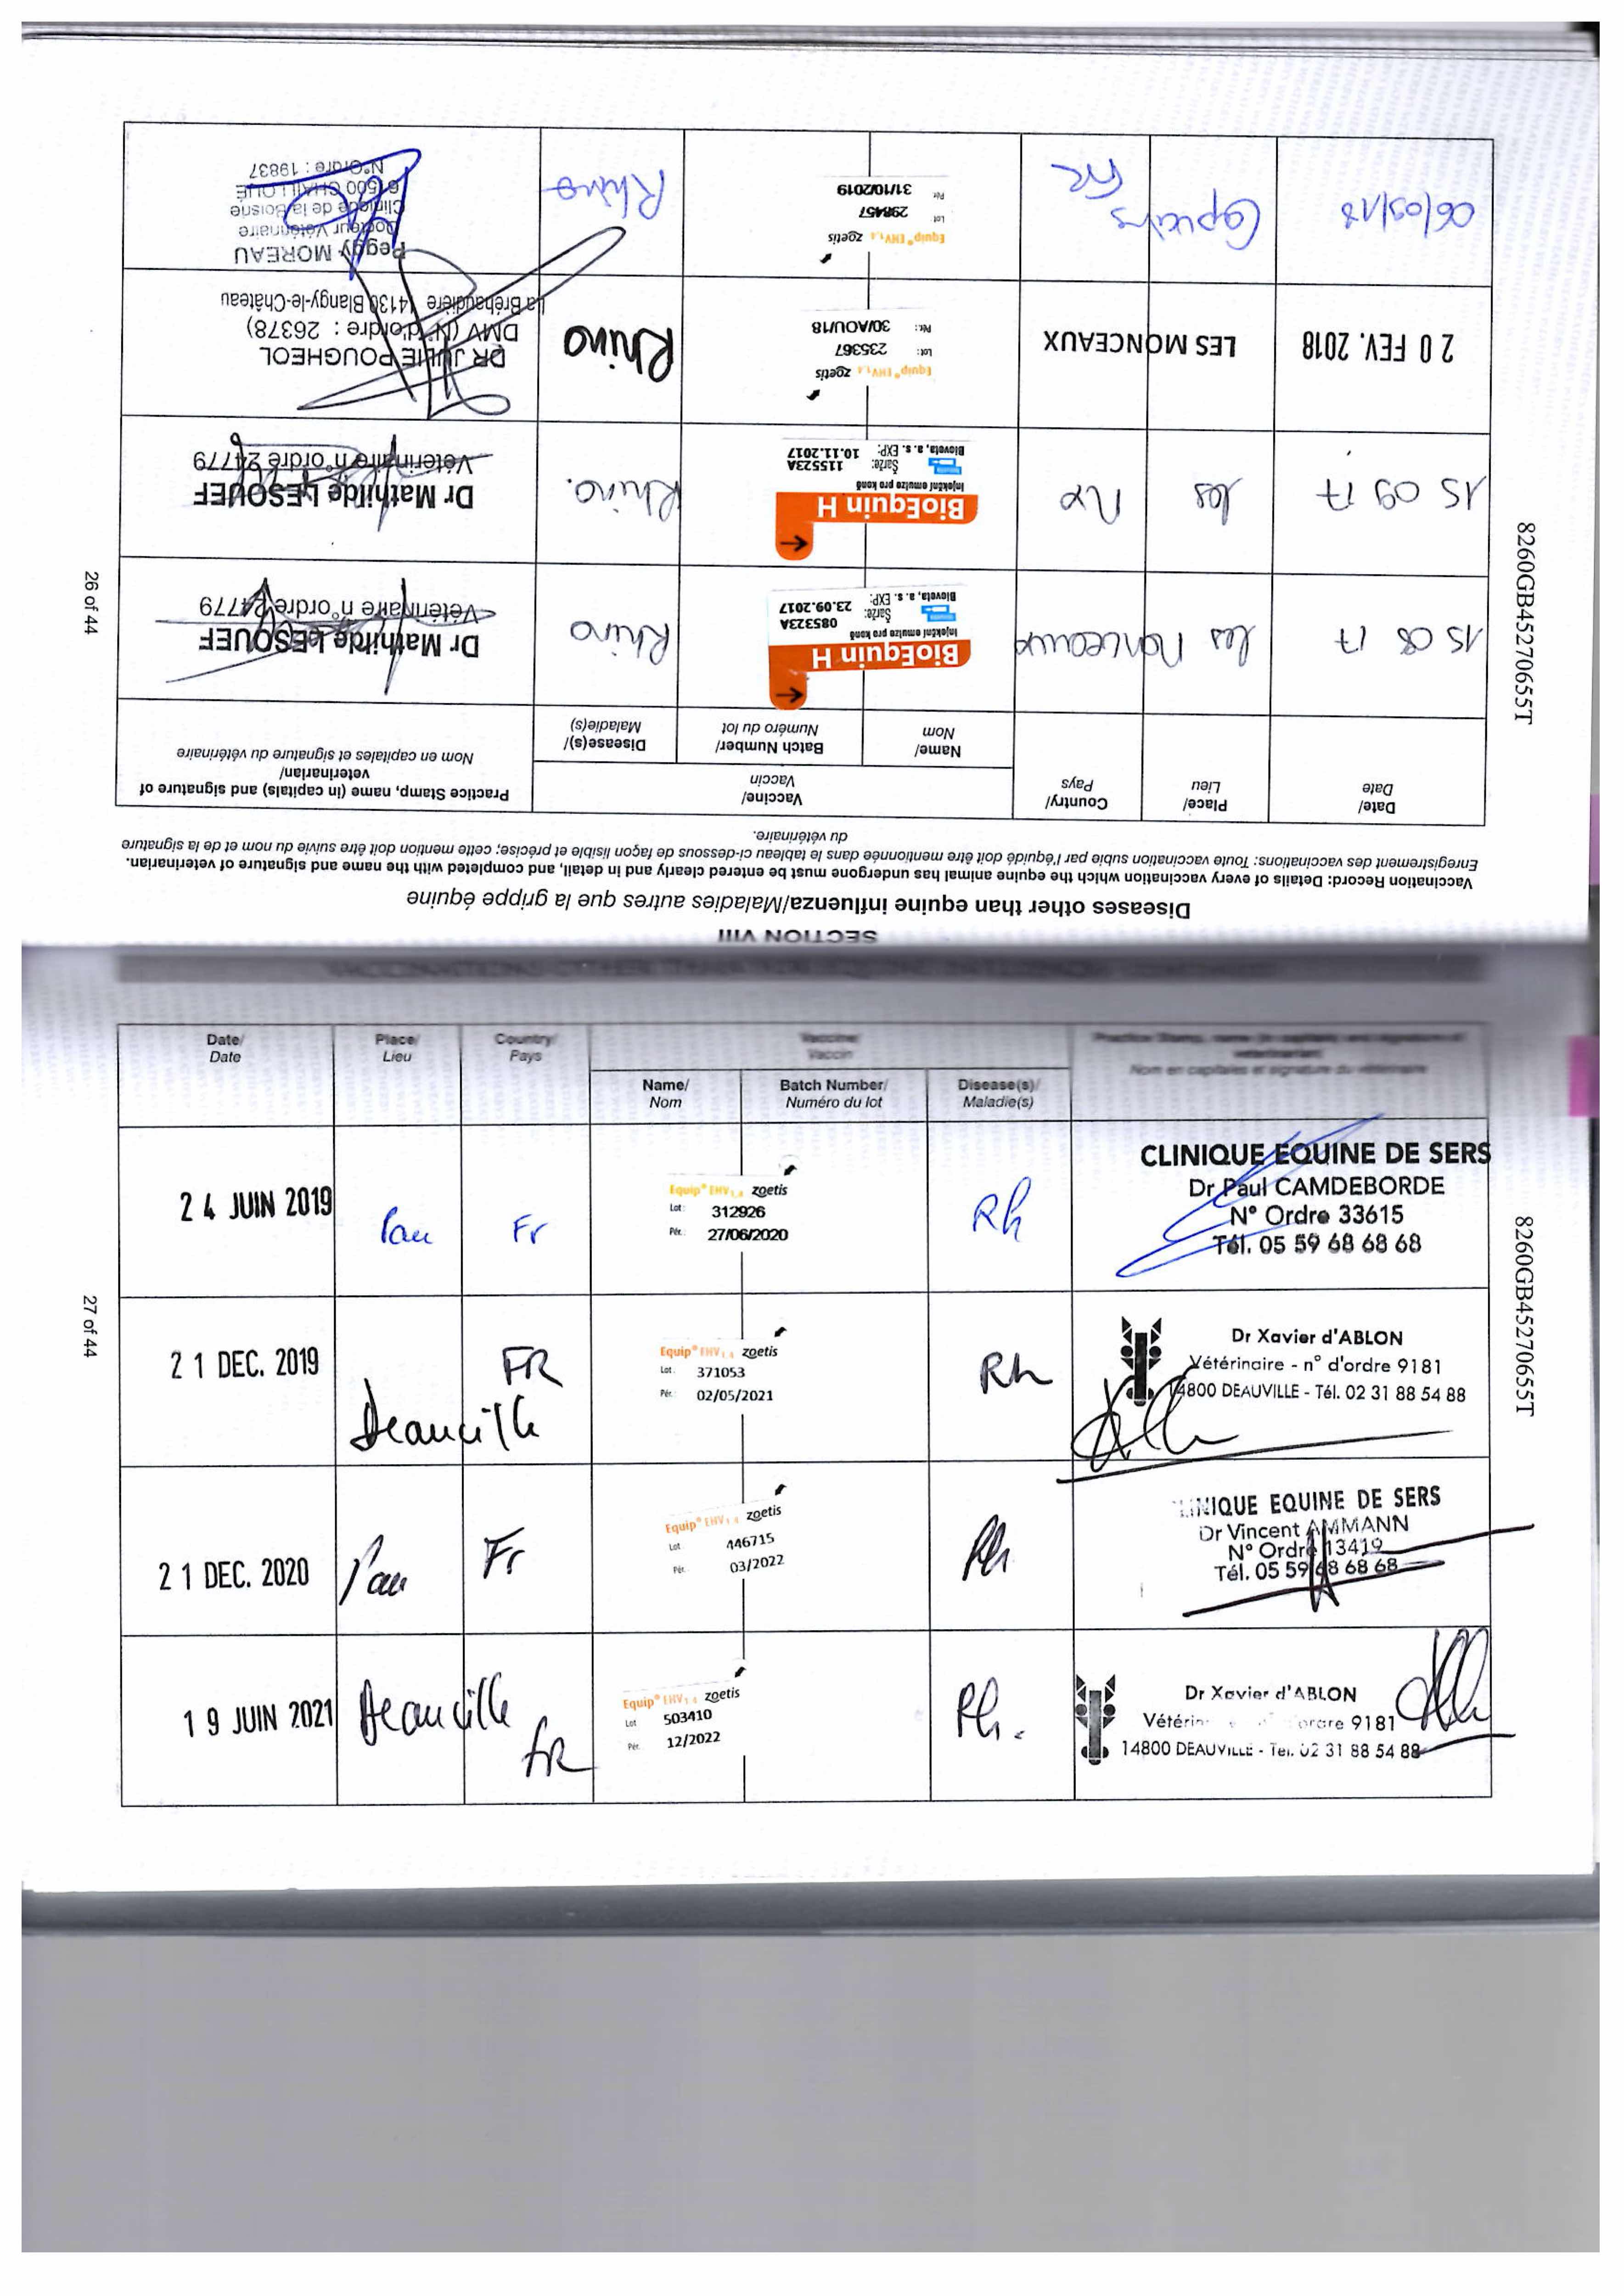 SECTION VIII
Diseases other than equine influenza/Maladies autres que la grippe équine
Vaccination Record: Details of every vaccination which the equine animal has undergone must be entered clearly and in detail, and completed with the name and signature of veterinarian.
Enregistrement des vaccinations: Toute vaccination subie par l'équidé doit être mentionnée dans le tableau ci-dessous de façon lisible et précise; cette mention doit être suivie du nom et de la signature
du vétérinaire.
Date/
Date
Place/
Lieu
Country/
Pays
Vaccine/
Vaccin
Name/
Nom
Batch Number/
Numéro du lot
Disease(s)/
Maladie(s)
Practice Stamp, name (in capitals) and signature of
veterinarian/
Nom en capitales et signature du vétérinaire
15 08 17
Les Monceaux
BioEquin H
Injekční emulze pro koně
Šarže: 085323A
Bioveta, a. s. EXP: 23.09.2017
Rhino
Dr Mathilde LESQUEF
Vétérinaire n°ordre 24779
15 09 17
Les Mx
BioEquin H
Injekční emulze pro koně
Šarže: 115523A
Bioveta, a. s. EXP: 10.11.2017
Rhino.
Dr Mathilde LESQUEF
Vétérinaire n°ordre 24779
20 FEV. 2018
LES MONCEAUX
Equip® EHV1,4 zoetis
Lot: 235367
Pér.: 30/AOU/18
Rhino
DR JULIE POUGHEOL
DMV (N°d'ordre : 26378)
La Bréhaudière 14130 Blangy-le-Château
06/09/18
Capucins
FR
Equip® EHV1,4 zoetis
Lot 298457
Pér. 31/10/2019
Rhino
Peggy MOREAU
Docteur Vétérinaire
Clinique de la Boisne
61500 CHAILLOUE
N°Ordre : 19837
8260GB45270655T
26 of 44
Date/
Date
Place/
Lieu
Country/
Pays
Vaccine/
Vaccin
Name/
Nom
Batch Number/
Numéro du lot
Disease(s)/
Maladie(s)
Practice Stamp, name (in capitals) and signature of
veterinarian/
Nom en capitales et signature du vétérinaire
24 JUIN 2019
Pau
Fr
Equip® EHV1,4 zoetis
Lot: 312926
Pér.: 27/06/2020
Rh
CLINIQUE EQUINE DE SERS
Dr Paul CAMDEBORDE
N° Ordre 33615
Tél. 05 59 68 68 68
21 DEC. 2019
Deauville
FR
Equip® EHV1,4 zoetis
Lot: 371053
Pér.: 02/05/2021
Rh
Dr Xavier d'ABLON
Vétérinaire - n° d'ordre 9181
14800 DEAUVILLE - Tél. 02 31 88 54 88
21 DEC. 2020
Pau
Fr
Equip® EHV1,4 zoetis
Lot 446715
Pér. 03/2022
Rh
CLINIQUE EQUINE DE SERS
Dr Vincent AMMANN
N° Ordre 13419
Tél. 05 59 68 68 68
19 JUIN 2021
Deauville
FR
Equip® EHV1,4 zoetis
Lot 503410
Pér. 12/2022
Rh.
Dr Xavier d'ABLON
Vétérin ordre 9181
14800 DEAUVILLE - Tel. 02 31 88 54 88
8260GB45270655T
27 of 44